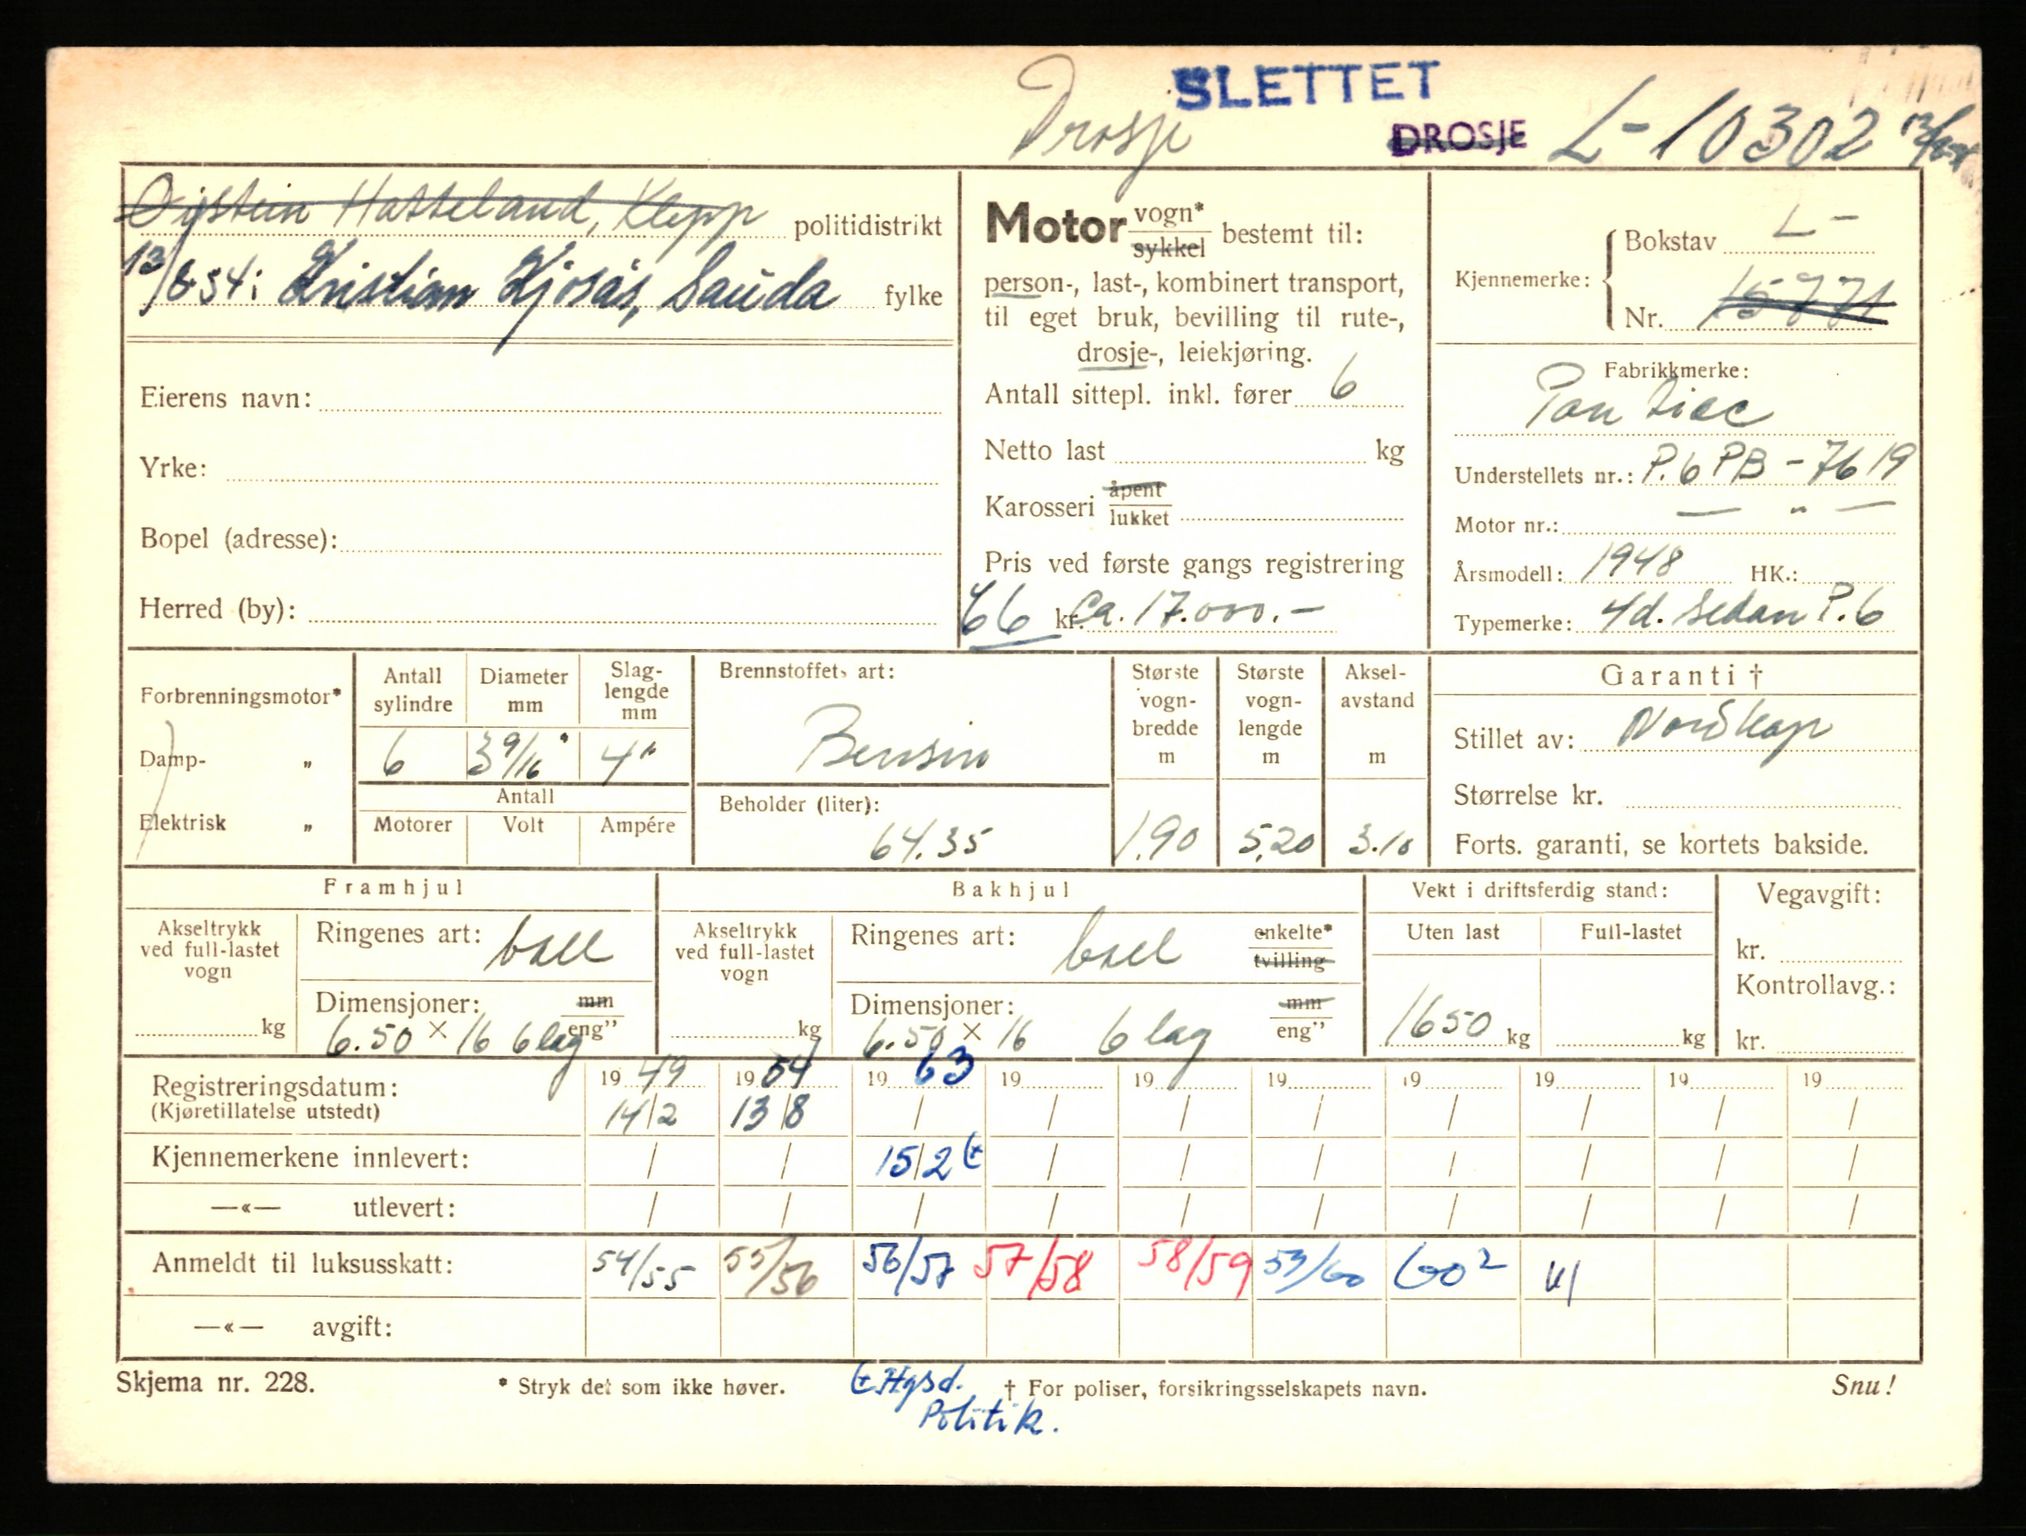 Drosje SLETTET
DROSJE L-10302
Øistein Hatteland, Klepp politidistrikt
13/8 54: Kristian Kjosås, Sauda fylke
Eierens navn:
Yrke:
Bopel (adresse):
Herred (by):
Motor vogn* sykkel bestemt til:
person-, last-, kombinert transport,
til eget bruk, bevilling til rute-,
drosje-, leiekjøring.
Antall sittepl. inkl. fører 6
Netto last kg
Karosseri åpent lukket
Pris ved første gangs registrering
66 kr. Ca. 17.000.-
Kjennemerke: Bokstav L-
Nr. 15771
Fabrikkmerke:
Pontiac
Understellets nr.: P.6 PB-7619
Motor nr.: — " —
Årsmodell: 1948 HK.:
Typemerke: 4d. Sedan P.6
Forbrenningsmotor*
Damp- "
Elektrisk "
Antall sylindre Diameter mm Slag-lengde mm
6 3 9/16" 4"
Antall
Motorer Volt Ampére
Brennstoffets art:
Bensin
Beholder (liter):
64.35
Største vogn-bredde m Største vogn-lengde m Aksel-avstand m
1.90 5,20 3.10
Garanti †
Stillet av: Nordkap
Størrelse kr.
Forts. garanti, se kortets bakside.
Framhjul
Akseltrykk ved full-lastet vogn kg
Ringenes art: ball
Dimensjoner: mm eng"
6.50 × 16 6 lag
Bakhjul
Akseltrykk ved full-lastet vogn kg
Ringenes art: ball enkelte* tvilling
Dimensjoner: mm eng"
6.50 × 16 6 lag
Vekt i driftsferdig stand:
Uten last Full-lastet
1650 kg kg
Vegavgift:
kr.
Kontrollavg.:
kr.
Registreringsdatum: 19 49 19 54 19 63 19 19 19 19 19 19 19
(Kjøretillatelse utstedt) 14/2 13/8 / / / / / / / /
Kjennemerkene innlevert: / / 15/2 / / / / / / /
—«— utlevert: / / / / / / / / / /
Anmeldt til luksusskatt: 54/55 55/56 56/57 57/58 58/59 59/60 60²
—«— avgift:
Skjema nr. 228. * Stryk det som ikke høver. Hgsd. † For poliser, forsikringsselskapets navn. Snu!
Politik.